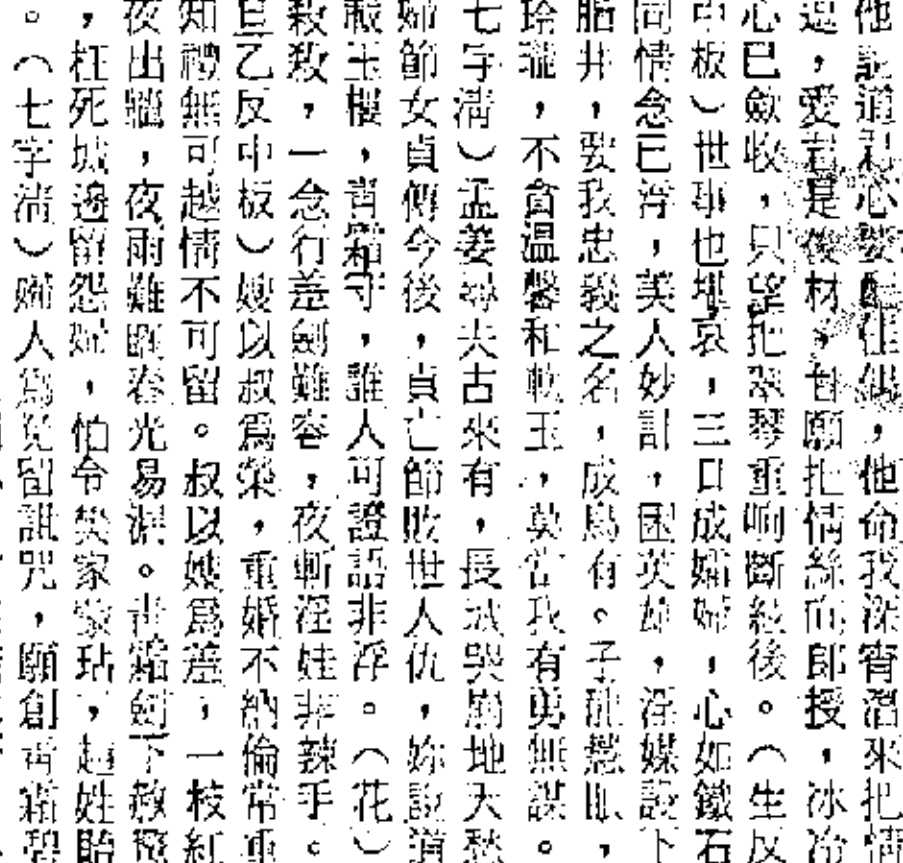 他記道君心要配佳偶，他命我深宵潛來把情
遞，愛君是俊材，甘願把情絲向郎授，冰冷
心已斂收，只望把翠琴重响斷絃後。（生反
中板）世事也堪哀，三口成孀婦，心如鐵石
同情念已浮，美人妙計，困英雄，淫媒設下
脂井，要我忠義之名，成烏有。子珮慾
玲瓏，不貪溫馨和軟玉，莫當我有勇無謀。
七字清）孟姜尋夫古來有，長城哭崩地天愁
婦節女貞傳今後，貞亡節敗世人仇，妳設道
玉樓，青霜守，誰人可證語非浮。（花）
殺敎，一念行差劍難容，夜斬淫娃非辣手。
旦乙反中板）嫂以叔爲榮，重婚不納倫常重
知禮無可越情不可留。叔以嫂爲羞，一枝紅
夜出牆，夜雨難 春光易洩。青霜劍下教
，枉死城邊留怨婦，怕令樊家蒙玷，趙姓貽
。（七字清）婦人爲 留詛咒，願創青霜碧